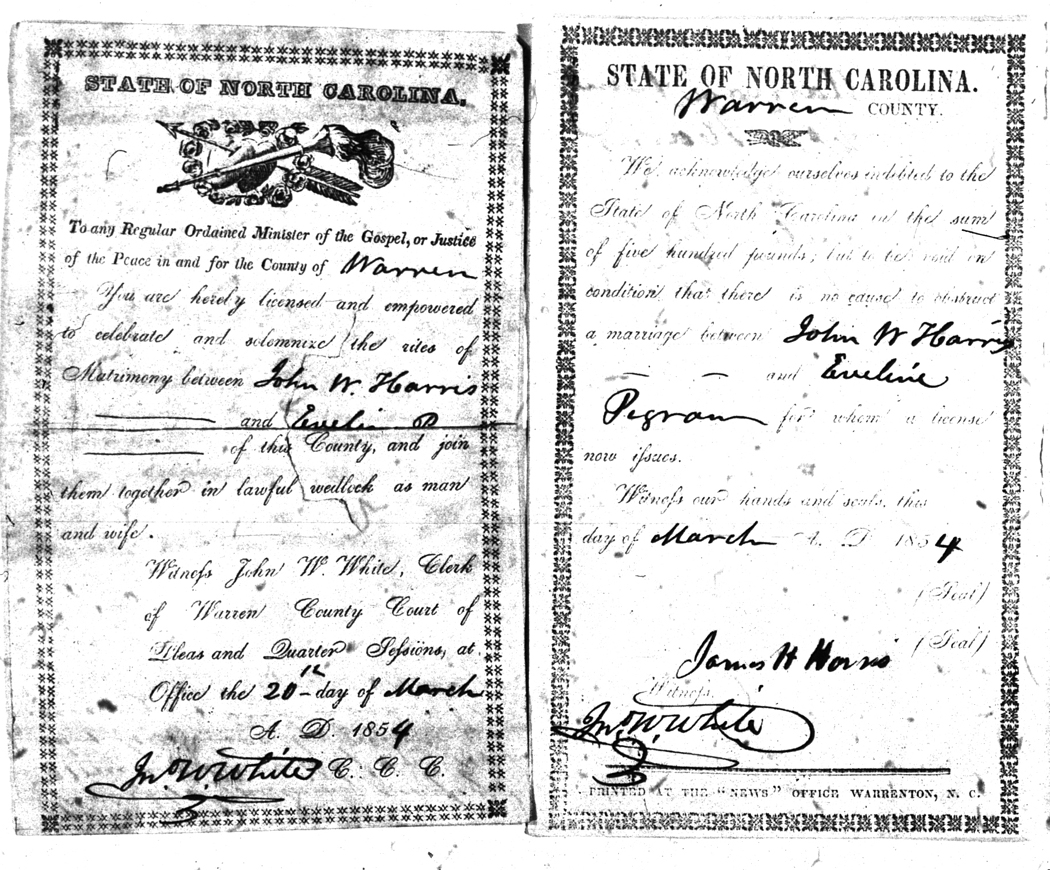 STATE OF NORTH CAROLINA.
To any Regular Ordained Minister of the Gospel, or Justice
of the Peace in and for the County of Warren
You are hereby licensed and empowered
to celebrate and solemnize the rites of
Matrimony between John W. Harris
and Evelin P
of this County, and join
them together in lawful wedlock as man
and wife.
Witness John W. White, Clerk
of Warren County Court of
Pleas and Quarter Sessions, at
Office the 20th day of March
A. D. 1854
Jno W. White C. C. C.
STATE OF NORTH CAROLINA.
Warren COUNTY.
We acknowledge ourselves indebted to the
State of North Carolina in the sum
of five hundred pounds, but to be void on
condition that there is no cause to obstruct
a marriage between John W Harris
and Eveline
Pegram for whom a license
now issues.
Witness our hands and seals, this
day of March A. D. 1854
(Seal)
(Seal)
James H
Witness,
Jno. W. White
PRINTED AT THE "NEWS" OFFICE WARRENTON, N. C.